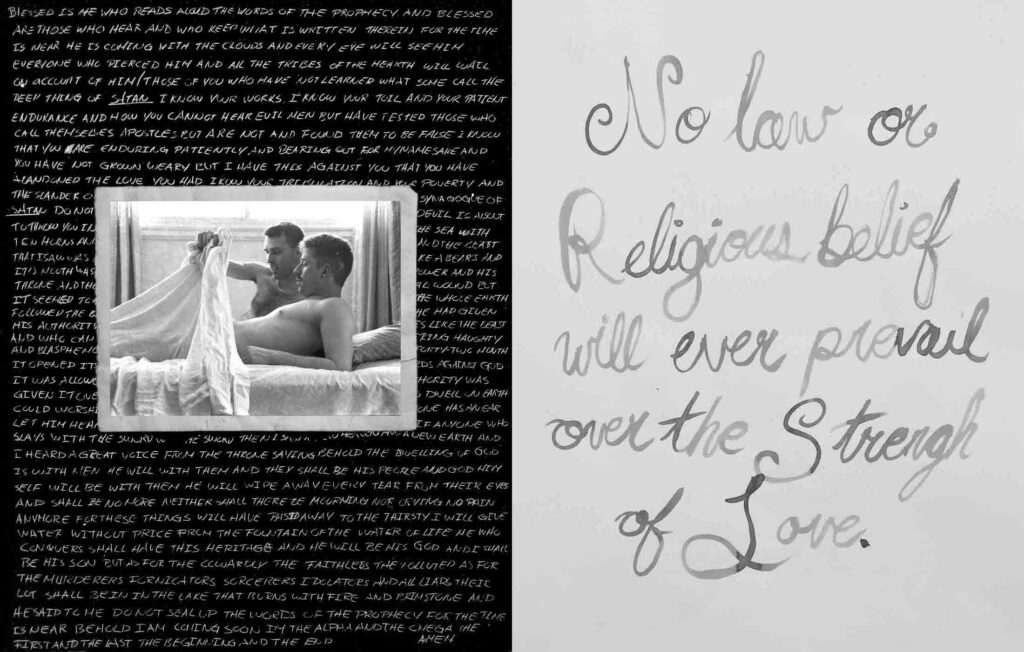 BLESSED IS HE WHO READS ALOUD THE WORDS OF THE PROPHECY AND BLESSED
ARE THOSE WHO HEAR AND WHO KEEP WHAT IS WRITTEN THEREIN FOR THE TIME
IS NEAR HE IS COMING WITH THE CLOUDS AND EVERY EYE WILL SEE HIM
EVERYONE WHO PIERCED HIM AND ALL THE TRIBES OF THE HEARTH WILL WAIL
ON ACCOUNT OF HIM/THOSE OF YOU WHO HAVE NOT LEARNED WHAT SOME CALL THE
DEEP THING OF SATAN I KNOW YOUR WORKS. I KNOW YOUR TOIL AND YOUR PATIENT
ENDURANCE AND HOW YOU CANNOT HEAR EVIL MEN BUT HAVE TESTED THOSE WHO
CALL THEMSELVES APOSTLES BUT ARE NOT AND FOUND THEM TO BE FALSE I KNOW
THAT YOU ARE ENDURING PATIENTLY AND BEARING OUT FOR MY NAME SAKE AND
YOU HAVE NOT GROWN WEARY BUT I HAVE THIS AGAINST YOU THAT YOU HAVE
ABANDONED THE LOVE YOU HAD I KOW YOUR TRIBULATION AND YOUR POVERTY AND
THE SLANDER O SYNAGOGUE OF
SATAN DO NOT DEVIL IS ABOUT
TO THROW YOU IN THE SEA WITH
TEN HORNS AN ND THE BEAST
THAT I SAW WAS KE A BEARS AND
IT'S MOUTH WAS POWER AND HIS
THRONE AND TH AL WOUND BUT
IT SEEMED TO HE WHOLE EARTH
FOLLOWED THE B HE HAD GIVEN
HIS AUTHORITY IS LIKE THE BEAST
AND WHO CAN ERING HAUGHTY
AND BLASPHEMO FORTY-TWO MONTH
IT OPENED ITS RDS AGAINST GOD
IT WAS ALLOW HORITY WAS
GIVEN IT ONE DWELL ON EARTH
COULD WORSHI ONE HAS AN EAR
LET HIM HEAR IF ANYONE WHO
SLAYS WITH THE HEAVEN AND A NEW EARTH AND
I HEARD A GREAT VOICE FROM THE THRONE SAYING BEHOLD THE DWELLING OF GOD
IS WITH MEN HE WILL WITH THEM AND THEY SHALL BE HIS PEOPLE AND GOD HIM
SELF WILL BE WITH THEM HE WILL WIPE AWAY EVERY TEAR FROM THEIR EYES
AND SHALL BE NO MORE NEITHER SHALL THERE BE MOURNING NOR CRYING NO PAIN
ANYMORE FOR THESE THINGS WILL HAVE PASSED AWAY TO THE THIRSTY I WILL GIVE
WATER WITHOUT PRICE FROM THE FOUNTAIN OF THE WATER OF LIFE HE WHO
CONQUERS SHALL HAVE THIS HERITAGE AND HE WILL BE HIS GOD AND I SHALL
BE HIS SON BUT AS FOR THE COWARDLY THE FAITHLESS THE POLLUTED AS FOR
THE MURDERERS FORNICATORS SORCERERS IDOLATORS AND ALL LIARS THEIR
LOT SHALL BE IN THE LAKE THAT BURNS WITH FIRE AND BRIMSTONE AND
HE SAID TO ME DO NOT SEAL UP THE WORDS OF THE PROPHECY FOR THE TIME
IS NEAR BEHOLD I AM COMING SOON I'M THE ALPHA AND THE OMEGA THE
FIRST AND THE LAST THE BEGINNING AND THE END AMEN
No law or
Religious belief
will ever prevail
over the Strengh
of Love.